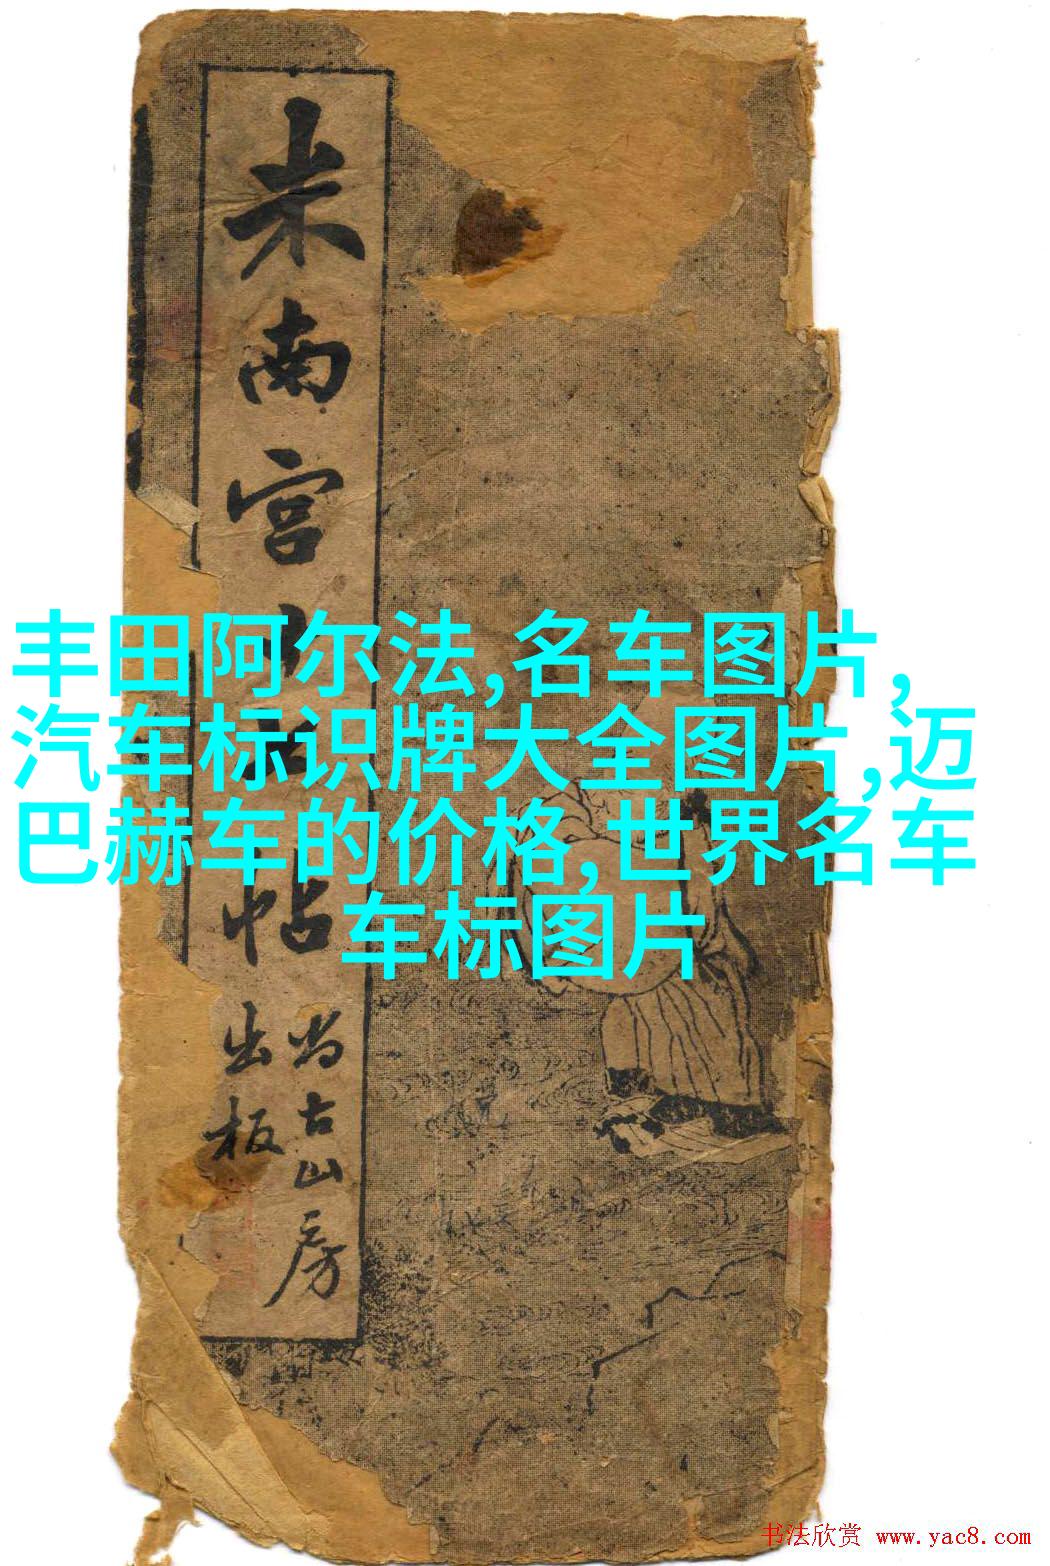 米南宫
帖
尚古山房
出板
丰田阿尔法,名车图片,
汽车标识牌大全图片,迈
巴赫车的价格,世界名车
车标图片
书法欣赏 www.yac8.com